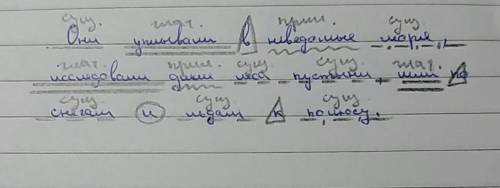 сущ. глаг. прил. сущ.
Они уплывали в неведанные моря,
глаг. прил. сущ. сущ. глаг.
исследовали дикие леса пустыни, шли по
сущ. сущ. сущ.
снегам и льдам к полюсу.